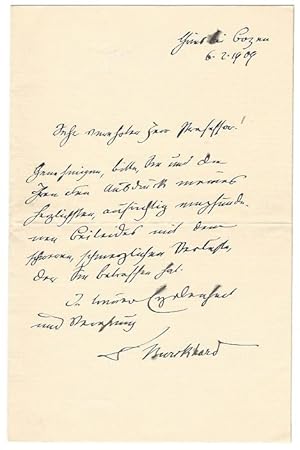 Gries bei Bozen
6.2.1909
Sehr verehrter Herr Professor!
Genehmigen, bitte, Sie und die
Ihren den Ausdruck meines
herzlichsten, aufrichtig empfunde-
nen Beileides mit dem
schweren, schmerzlichen Verluste,
der Sie betroffen hat.
In treuer Ergebenheit
und Verehrung
Burckhard